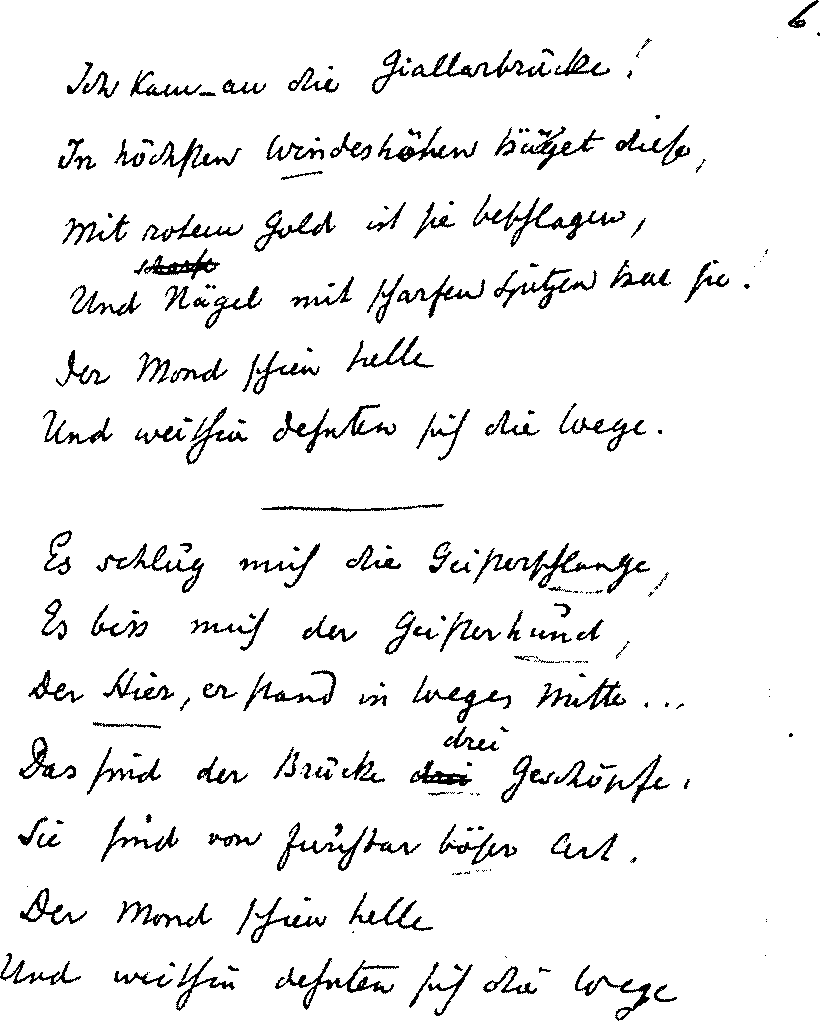 6.
Ich kam an die Giallarbrücke!
In höchsten Windeshöhen hänget diese,
Mit rotem Gold ist sie beschlagen,
Und Nägel mit scharfen Spitzen hat sie.
Der Mond schien helle
Und weithin dehnten sich die Wege.
Es schlug mich die Geisterschlange,
Es biss mich der Geisterhund,
Der Stier, er stand in Weges Mitte...
drei
Das sind der Brücke drei Geschöpfe.
Sie sind von furchtbar böser Art.
Der Mond schien helle
Und weithin dehnten sich die Wege